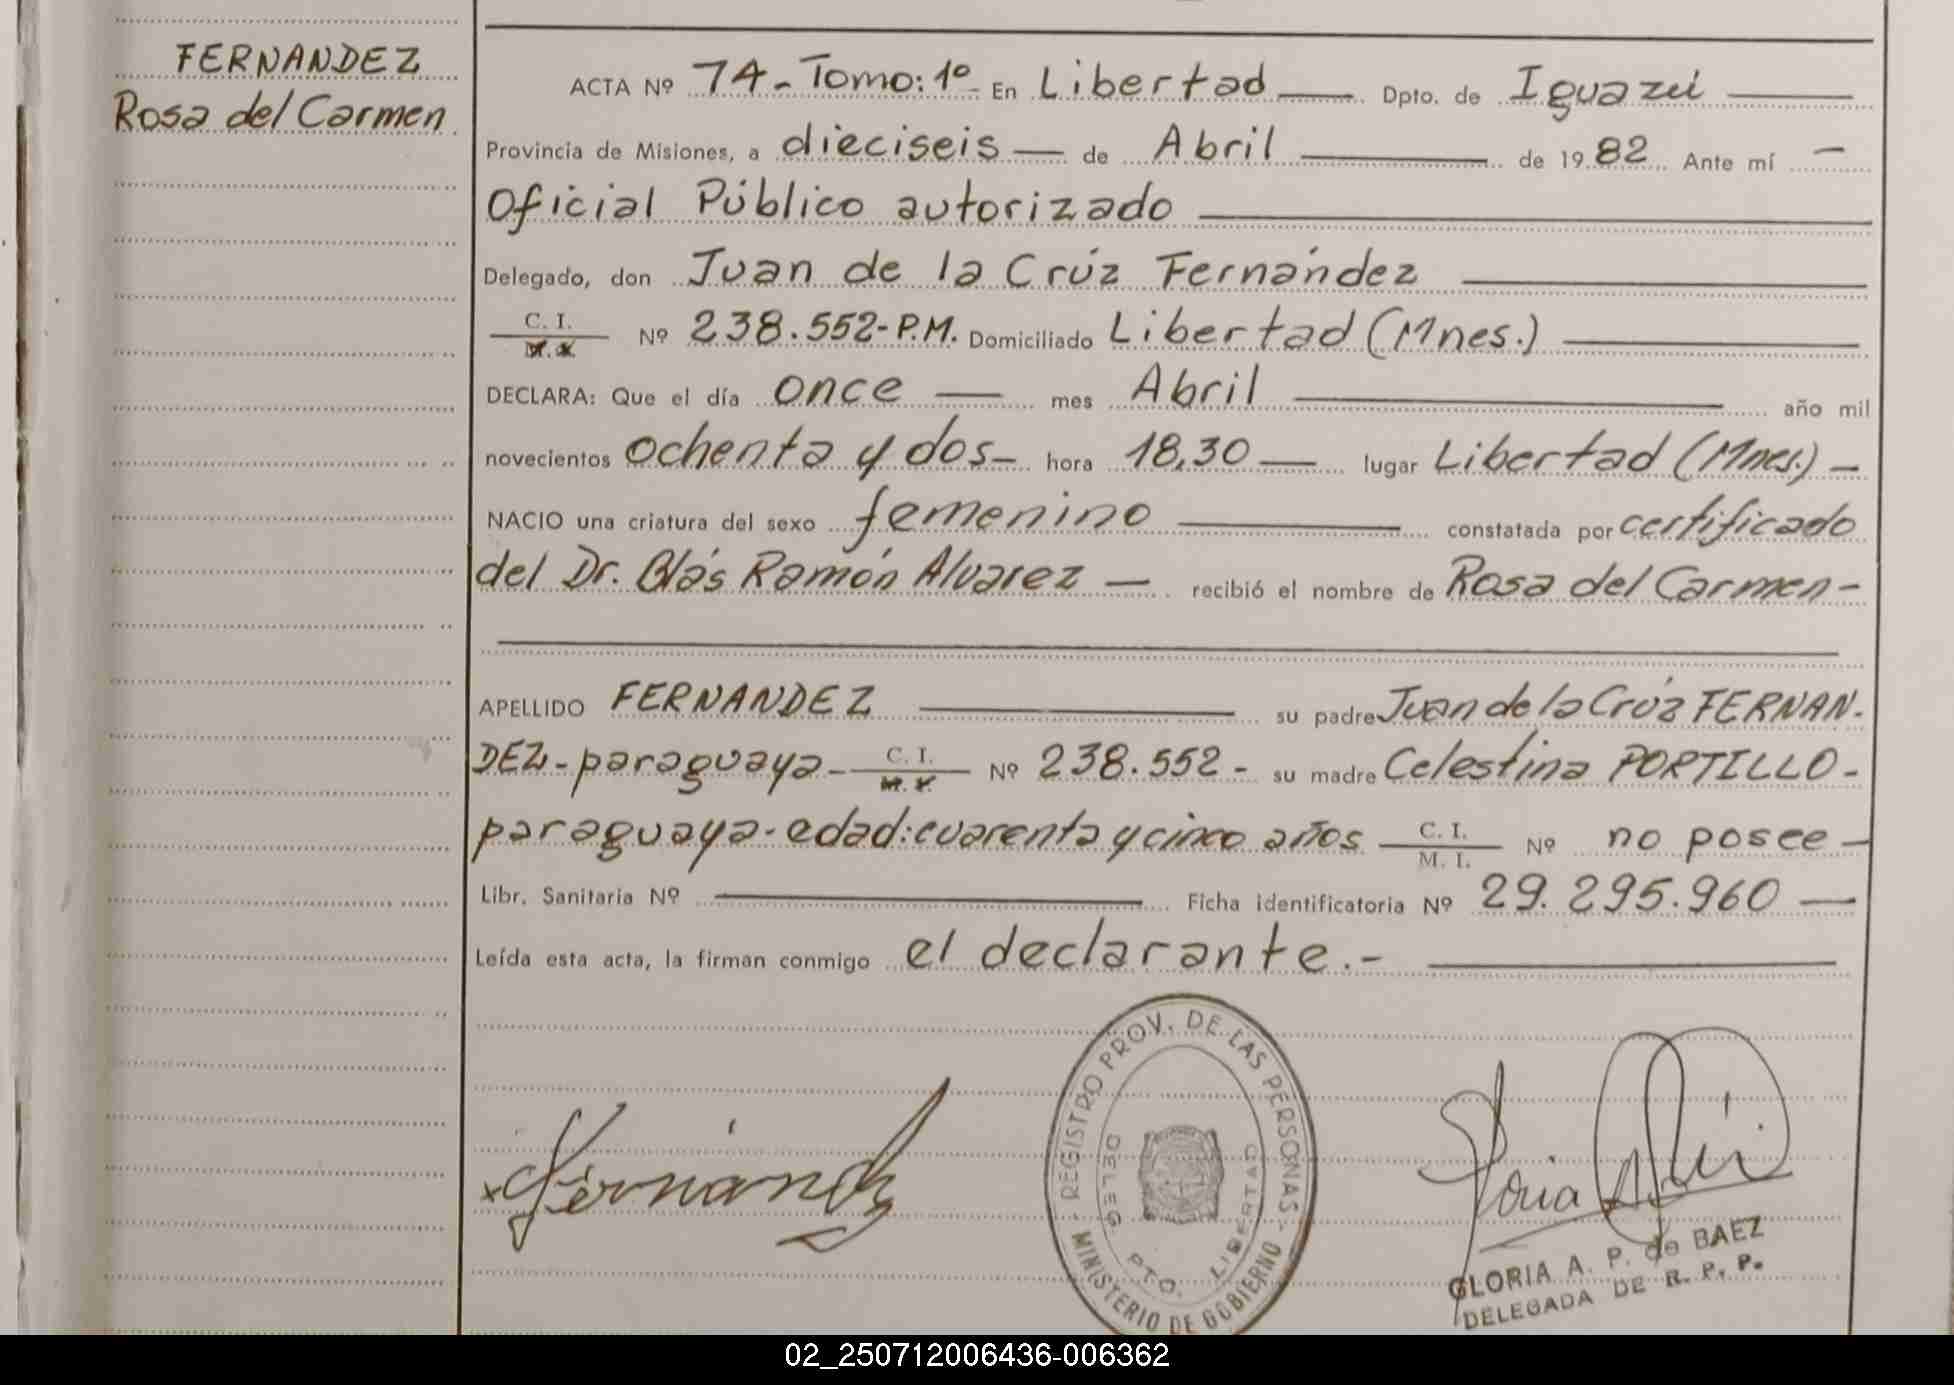 FERNANDEZ
Rosa del Carmen
ACTA Nº 74 - Tomo: 1º - En Libertad Dpto. de Iguazú
Provincia de Misiones, a dieciseis de Abril de 1982 Ante mí
Oficial Público autorizado
Delegado, don Juan de la Crúz Fernández
C. I. M. I. Nº 238.552-P.M. Domiciliado Libertad (Mnes.)
DECLARA: Que el día once mes Abril año mil
novecientos ochenta y dos- hora 18,30 lugar Libertad (Mnes.) -
NACIO una criatura del sexo femenino constatada por certificado
del Dr. Blás Ramón Alvarez - recibió el nombre de Rosa del Carmen -
APELLIDO FERNANDEZ su padre Juan de la Crúz FERNAN-
DEZ - paraguaya - C. I. M. I. Nº 238.552 - su madre Celestina PORTILLO -
paraguaya - edad: cuarenta y cinco años C. I. M. I. Nº no posee -
Libr. Sanitaria Nº Ficha identificatoria Nº 29.295.960
Leída esta acta, la firman conmigo el declarante.-
REGISTRO PROV. DE LAS PERSONAS
MINISTERIO DE GOBIERNO
DELEG. PTO. LIBERTAD
Fernández
GLORIA A. P. de BAEZ
DELEGADA DE R. P. P.
02_250712006436-006362